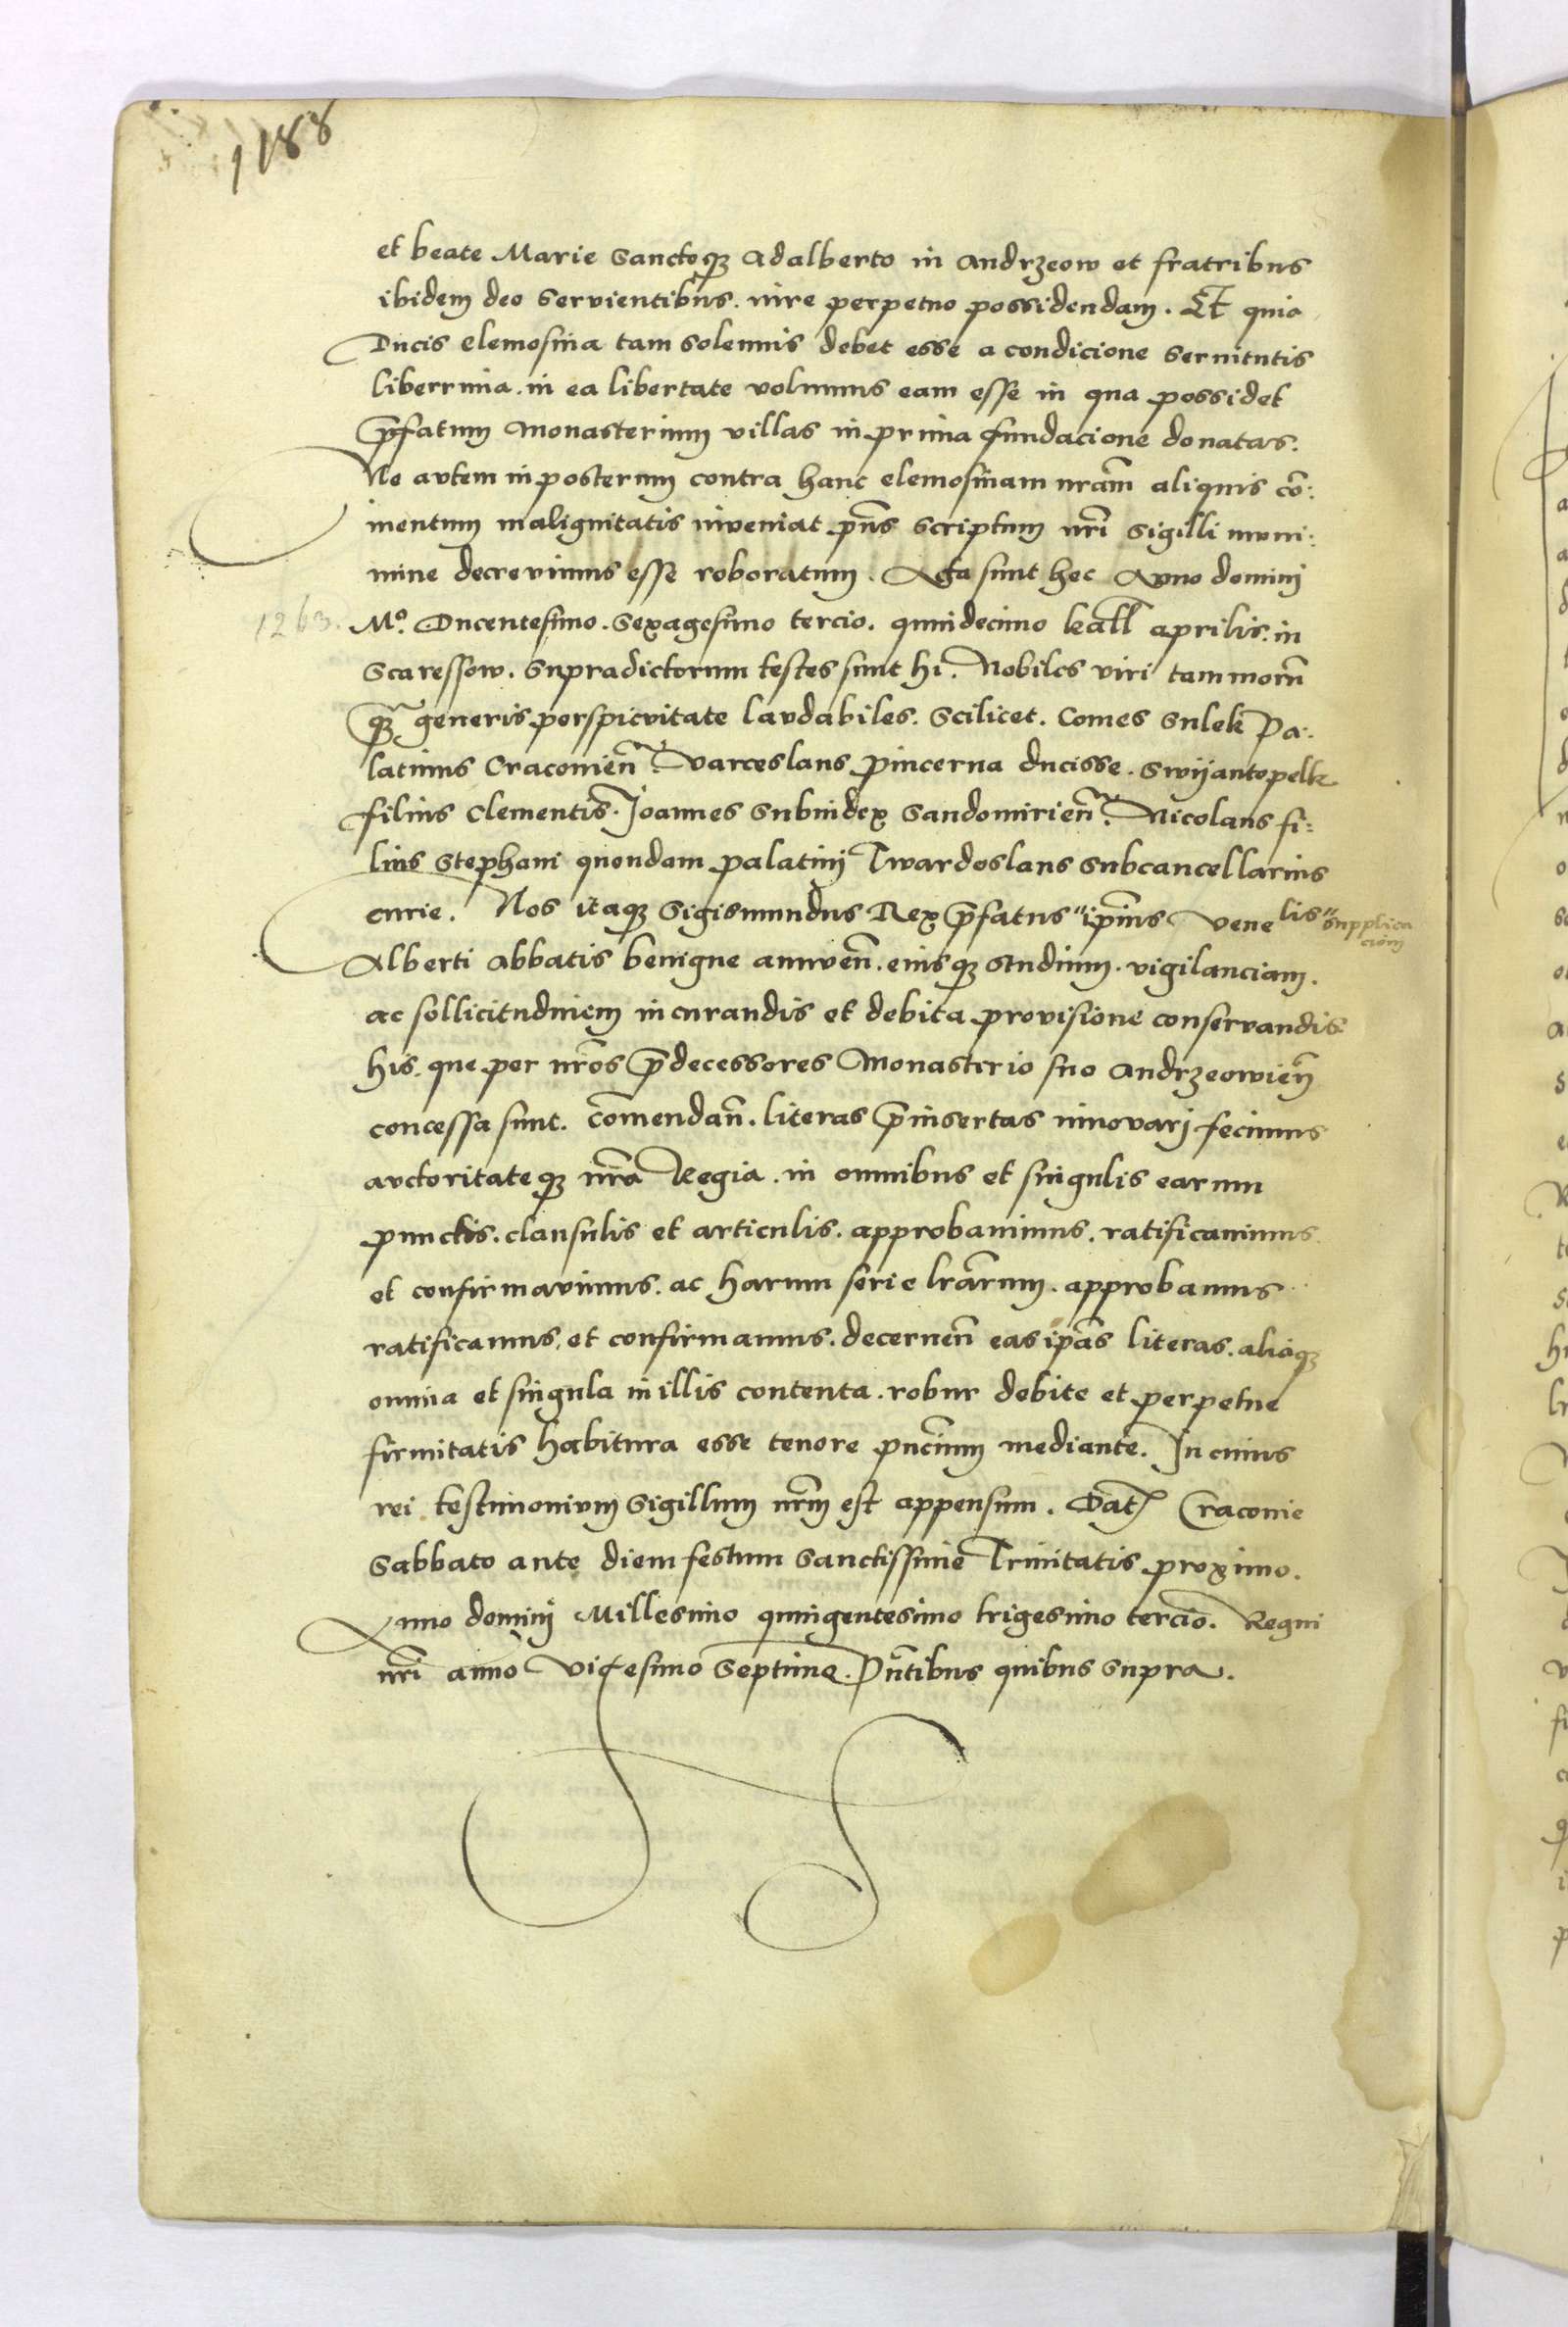 1188
et beate Marie Sanctoqꝫ Adalberto in Andrzeow et fratribus
ibidem deo servientibus. iure perpetuo possidendam. Et quia
Ducis elemosina tam solennis debet esse a condicione servitutis
liberrima. in ea libertate volumus eam esse in qua possidet
p̄fatum Monasterium villas in prima fundacione donatas.
Ne autem in posterum contra hanc elemosinam nr̄am aliquis co̅:
mentum malignitatis inveniat pn̄s scriptum nr̄i sigilli muni:
mine decrevimus esse roboratum. Acta sunt hec Anno dominj
1263. Mᵒ. Ducentesimo. Sexagesimo tercio. quindecimo kall̄ aprilis. in
Scaressow. Supradictorum testes sunt hi. Nobiles viri tam morū
qꝫ generis perspicuitate laudabiles. Scilicet. Comes Sulek Pa:
latinus Cracovień. Varceslaus pincerna ducisse. Swijantopelk
filius Clementis. Joannes Subiudex Sandomirień. Nicolaus fi:
lius Stephani quondam palatinj Twardoslaus subcancellarius
curie. Nos itaqꝫ Sigismundus Rex p̄fatus " ip̄ius Vene lis " supplica
cioni
Alberti Abbatis benigne annueń. eiusqꝫ studium. vigilanciam.
ac sollicitudinem in curandis et debita provisione conservandis
his. que per nr̄os p̄decessores Monasterio suo Andrzeowień
concessa sunt. co̅mendań. literas p̄insertas innovarj fecimus
auctoritateqꝫ nr̄a Regia. in omnibus et singulis earum
punctis. clausulis et articulis. approbavimus. ratificavimus.
et confirmavimus. ac harum serie lr̄arum. approbamus
ratificamus. et confirmamus. decerneń eas ip̄as literas. aliaqꝫ
omnia et singula in illis contenta. robur debite et perpetue
firmitatis habitura esse tenore pn̄cium mediante. In cuius
rei testimonium Sigillum nr̄m est appensum. Dat̄ Cracovie
Sabbato ante diem festum Sanctissime Trinitatis proximo.
Anno dominj Millesimo quingentesimo trigesimo tercio. Regni
nr̄i anno Vicesimo Septimo. Pn̄tibus quibus supra.